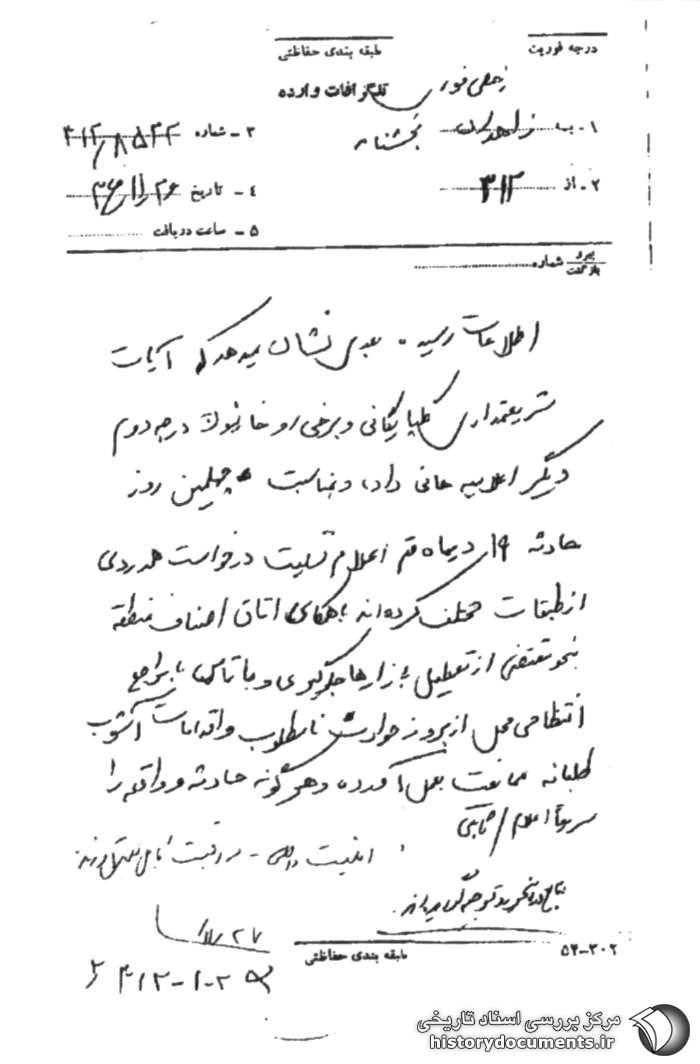 درجه فوریت
طبقه بندی حفاظتی
خیلی فوری
تلگرافات وارده
۱- به زاهدان بخشنامه
۳- شماره ۴۱۲/۸۵۴۲
۲- از ۳۱۲
۴- تاریخ ۲۶/۱۱/۳۶
۵- ساعت دریافت
پیرو
بازگشت
شماره
اطلاعات رسیده بعدی نشان میدهد که آیات
شریعتمداری گلپایگانی و برخی روحانیون درجه دوم
دیگر اعلامیه هائی داده و بمناسبت چهلمین روز
حادثه ۱۹ دیماه قم اعلام تسلیت درخواست همدردی
از طبقات مختلف کرده اند با همکاری اتاق اصناف منطقه
بنحو مقتضی از تعطیل بازارها جلوگیری و با تماس با مراجع
انتظامی محل از بروز حوادث نامطلوب و اقدامات آشوب
طلبانه ممانعت بعمل آورده و هر گونه حادثه و واقعه را
سریعاً اعلام / ثابتی
امنیت داخلی - مراقبت کامل معمول دارند
۲۷/۱۱
۴۱۲-۱-۲۵
طبقه بندی حفاظتی
۵۴-۳۰۲
مرکز بررسی اسناد تاریخی
historydocuments.ir